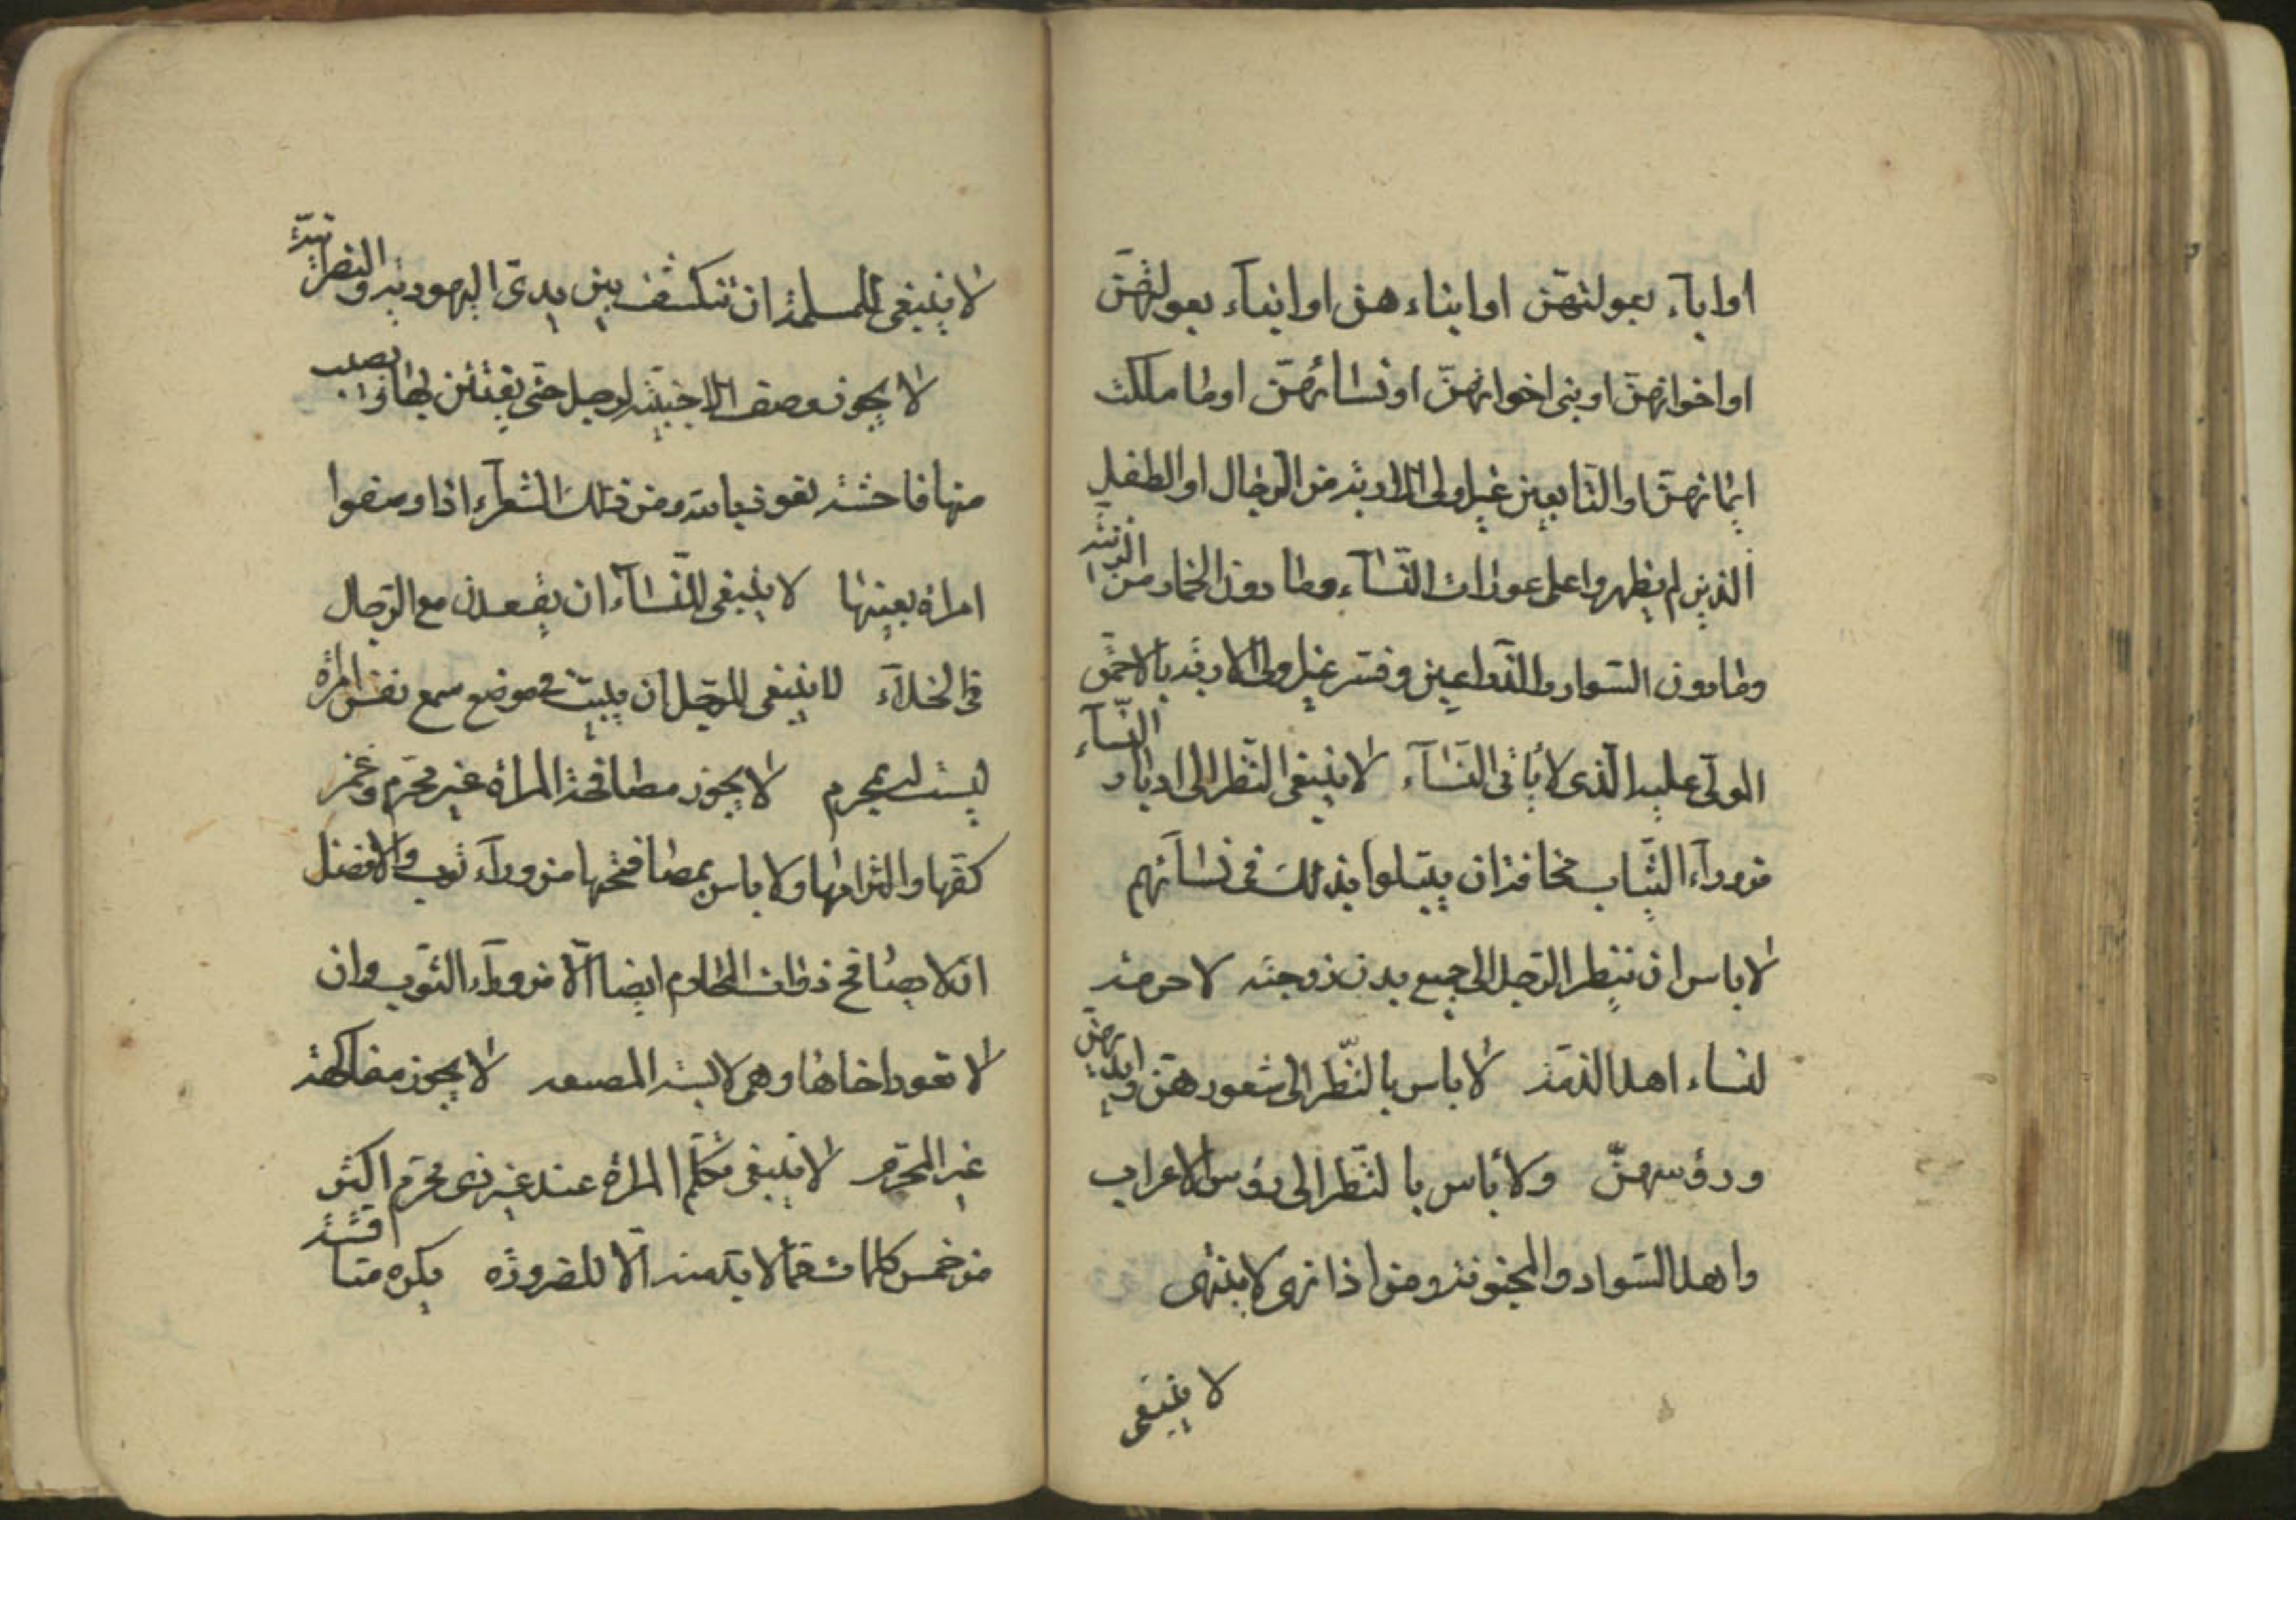 او اباۤء بعولتهنّ او ابناء هنّ او ابناۤء بعولتهنّ
او اخوانهنّ او بنى اخوانهنّ او نسائهنّ او ما ملكت
ايمانهنّ او التابعين غير اولى الاربة من الرّجال او الطفل
الذين لم يظهروا على عورات النّساۤء وما دون الخمار من الزينة
وما دون السّوار والذّراعين وفسّر غير اولى الاربة بالاحمق
المولّى عليه الّذى لا يأتى النّساۤء لا ينبغى النّظر الى ادبار النّساۤء
من وراۤء الثّياب مخافة ان يبتلوا بذلك فى نساۤئهم
لا باس ان ينظر الرّجل الى جميع بدن زوجته لا حرمة
لنساء اهل الذمّة لا باس بالنّظر الى شعورهنّ وايديهنّ
ورؤسهنّ ولا بأس بالنّظر الى رؤس الاعراب
واهل السّواد والمجنونة ومن اذا نهى لا ينتهى
لا ينبغى
لا ينبغى للمسلمة ان تنكشف بين يدى اليهودية والنصرانيّة
لا يجوز وصف الاجنبيّة لرجل حتّى يفتتن بها ويصيب
منها فاحشة نعوذ بالله ومن ذلك الشعراۤء اذا وصفوا
امراة بعينها لا ينبغى للنّساۤء ان يقعدن مع الرّجال
فى الخلاۤء لا ينبغى للرّجل ان يبيت فى موضع سمع نفس امراة
ليست له بمحرم لا يجوز مصافحة المراة غير محرم وغمز
كفّها والتزامها ولا باس بمصافحتها من وراۤء ثوب والافضل
ان لا يصافح ذوات المحارم ايضا الّا من وراۤء الثّوب وان
لا تعود اخاها وهى لابسة المصبعه لا يجوز مفاكهة
غير المحرّم لا ينبغى تكلّم المراة عند غير ذى محرم اكثر
من خمس كلمات ممّا لا بدّ منه الّا للضرورة يكره مناقشة